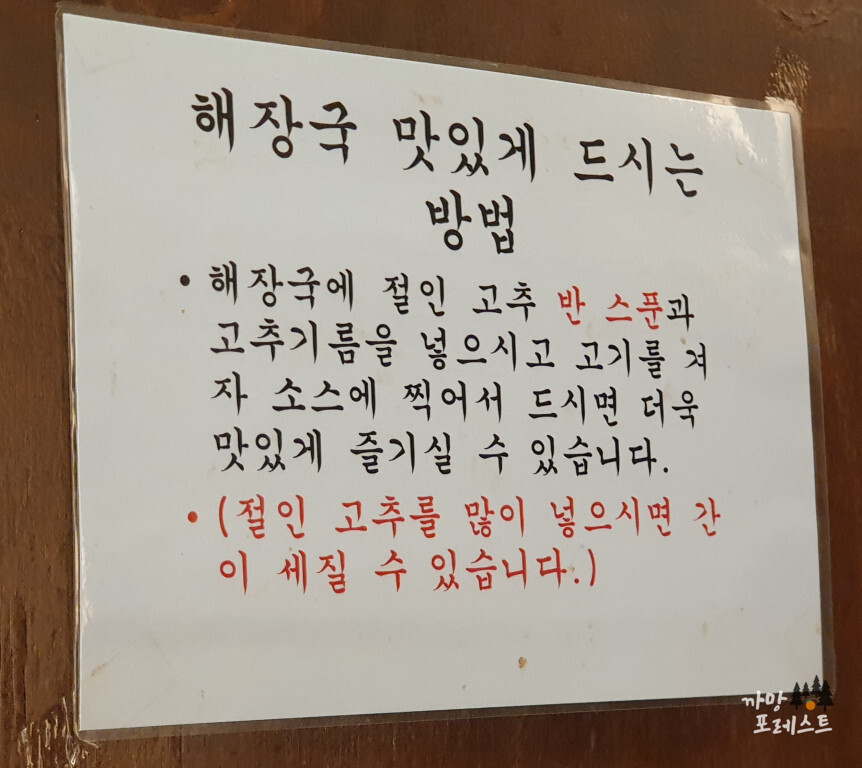 해장국 맛있게 드시는
방법
• 해장국에 절인 고추 반 스푼과
고추기름을 넣으시고 고기를 겨
자 소스에 찍어서 드시면 더욱
맛있게 즐기실 수 있습니다.
• (절인 고추를 많이 넣으시면 간
이 세질 수 있습니다.)
까망
포레스트